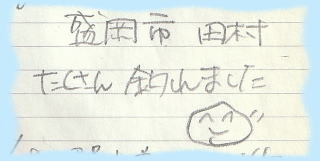 盛岡市 田村
たくさん釣れました